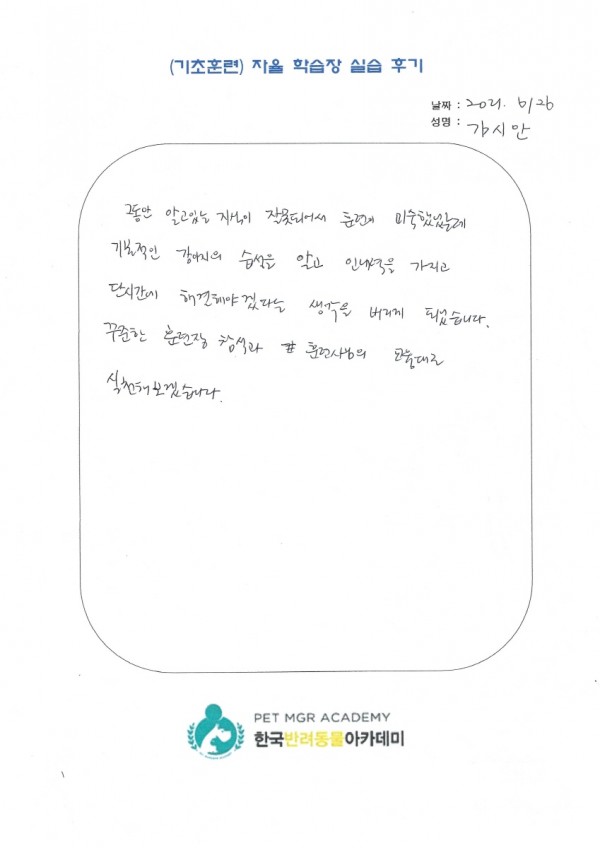 (기초훈련) 자율 학습장 실습 후기
날짜 : 2021. 6/26
성명 : 강시안
그동안 알고있는 지식이 잘못되어서 훈련에 미숙했었는데
기본적인 강아지의 습성을 알고 인내력을 가지고
단시간에 해결해야겠다는 생각을 버리게 되었습니다.
꾸준한 훈련장 참석과 훈련사님의 말대로
실천해보겠습니다.
PET MGR ACADEMY
한국반려동물아카데미